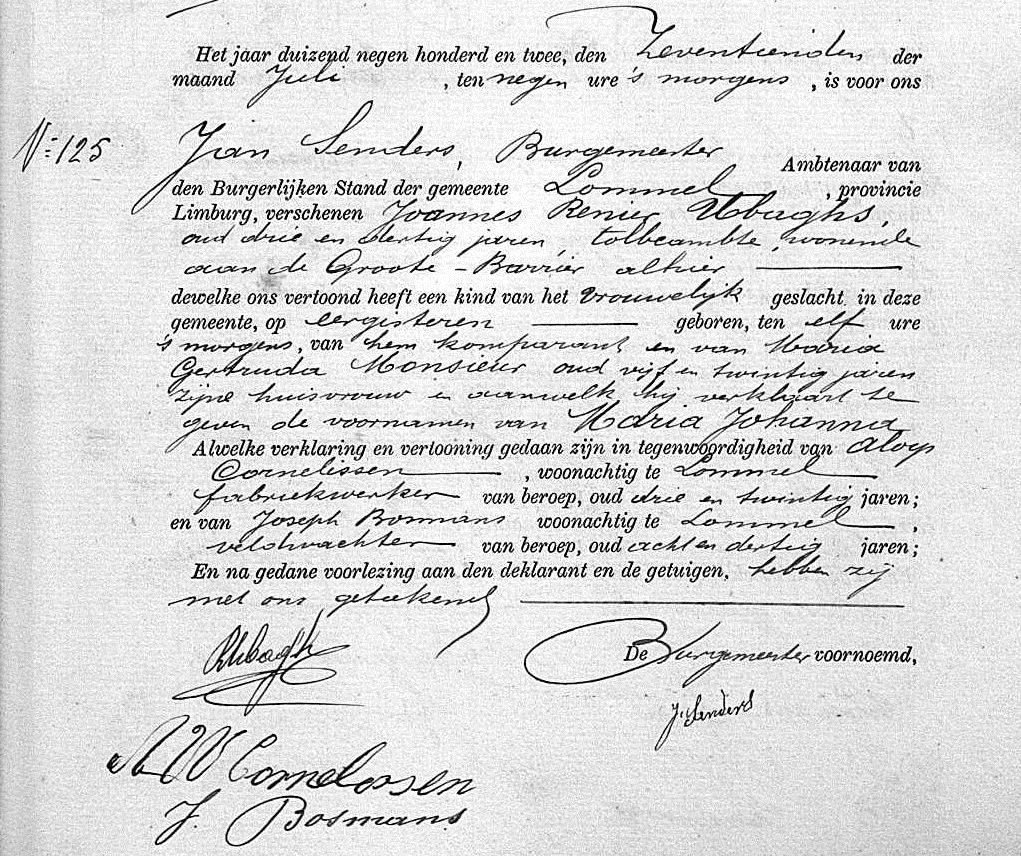 Het jaar duizend negen honderd en twee, den Zeventienden der
maand Juli, ten negen ure 's morgens, is voor ons
N: 125
Jan Senders, Burgemeester Ambtenaar van
den Burgerlijken Stand der gemeente Lommel, provincie
Limburg, verschenen Joannes Renier Ubaghs,
oud drie en dertig jaren, tolbeambte, wonende
aan de Groote-Barrier alhier
dewelke ons vertoond heeft een kind van het vrouwelijk geslacht in deze
gemeente, op eergisteren geboren, ten elf ure
's morgens, van hem komparant en van Maria
Gertruda Monsieur oud vijf en twintig jaren
zijne huisvrouw en aanwelk hij verklaart te
geven de voornamen van Maria Johanna
Alwelke verklaring en vertooning gedaan zijn in tegenwoordigheid van Aloys
Cornelissen, woonachtig te Lommel
fabriekwerker van beroep, oud drie en twintig jaren;
en van Joseph Bosmans woonachtig te Lommel,
veldwachter van beroep, oud acht en dertig jaren;
En na gedane voorlezing aan den deklarant en de getuigen, hebben zij
met ons geteekend
De Burgemeester voornoemd,
RUbaghs
J. Senders
Cornelissen
J. Bosmans